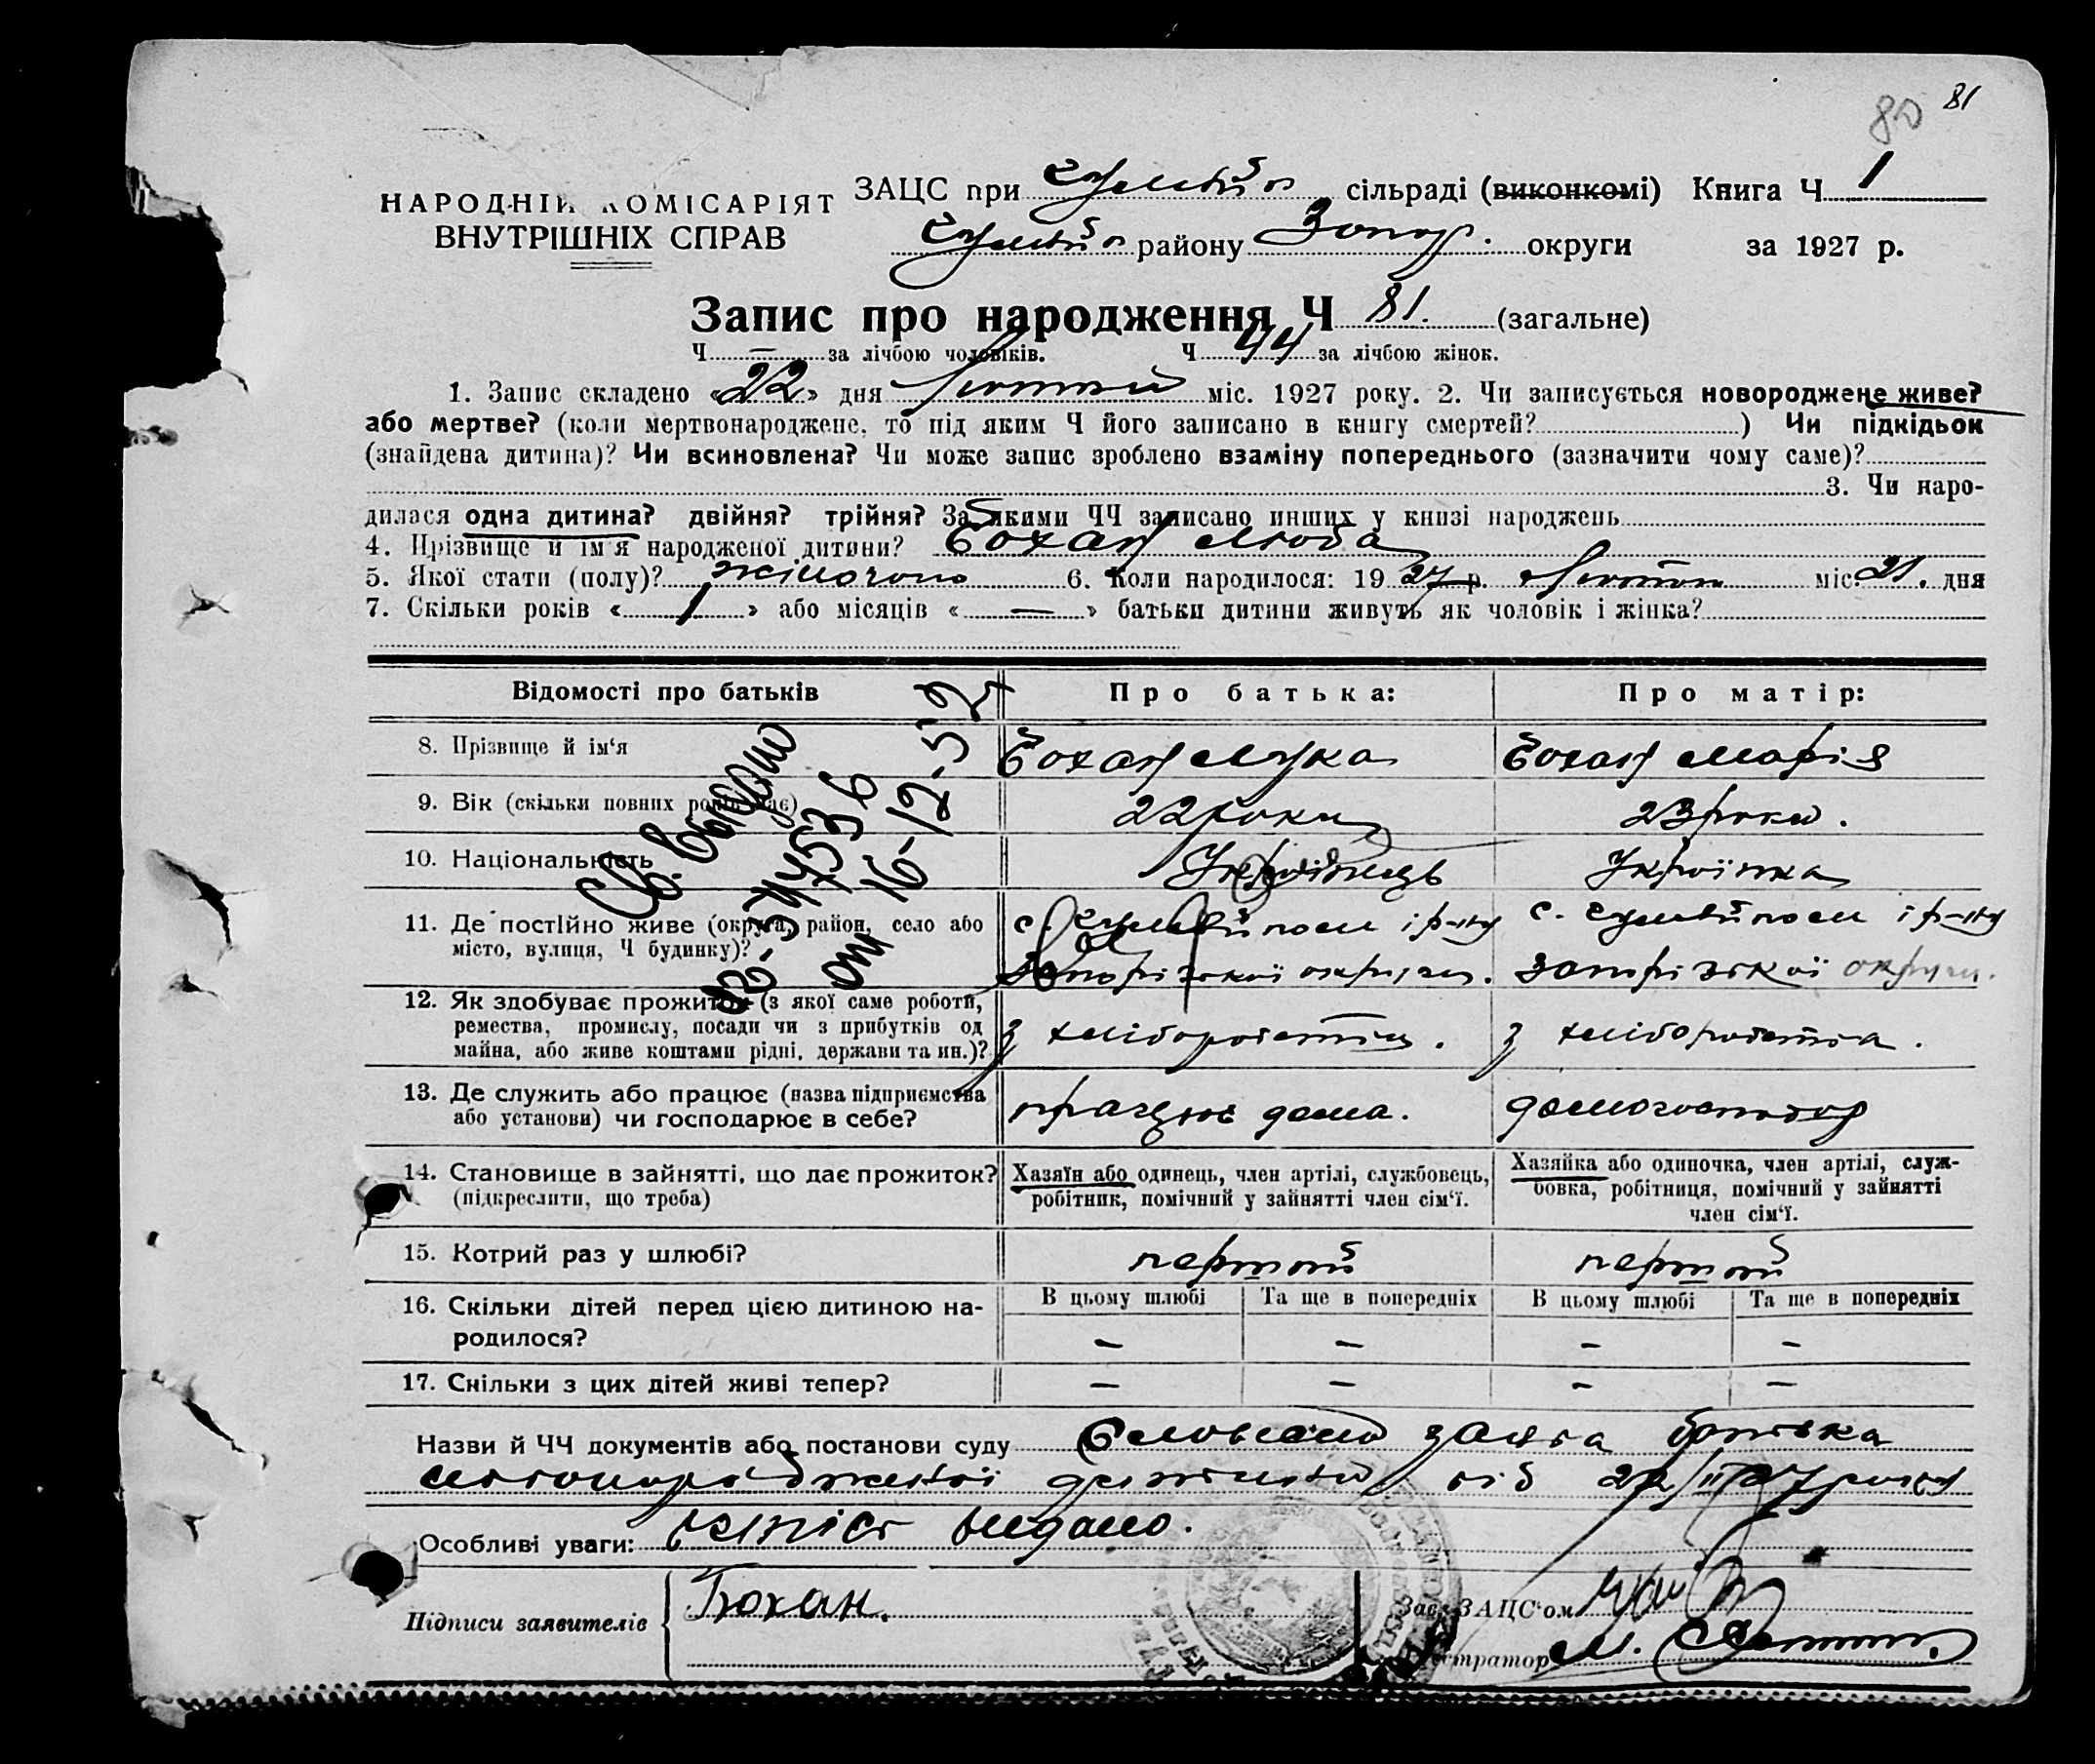 80 81
НАРОДНІЙ КОМІСАРІЯТ
ВНУТРІШНІХ СПРАВ
ЗАЦС при сільраді (виконкомі) Книга Ч 1
району Запор. округи за 1927 р.
Запис про народження Ч 81. (загальне)
Ч — за лічбою чоловіків. Ч 44 за лічбою жінок.
1. Запис складено «22» дня Лютий міс. 1927 року. 2. Чи записується новороджене живе?
або мертве? (коли мертвонароджене, то під яким Ч його записано в книгу смертей? ) Чи підкідьок
(знайдена дитина)? Чи всиновлена? Чи може запис зроблено взаміну попереднього (зазначити чому саме)?
3. Чи наро-
дилася одна дитина? двійня? трійня? За якими ЧЧ записано инших у книзі народжень
4. Прізвище й ім'я народженої дитини? Бохан Люба
5. Якої стати (полу)? жіночого 6. Коли народилося: 19 27 р. Лютого міс. 21. дня
7. Скільки років «1» або місяців «—» батьки дитини живуть як чоловік і жінка?
Відомості про батьків Про батька: Про матір:
8. Прізвище й ім‘я Бохан Лука Бохан Марія
9. Вік (скільки повних років має) 22 роки 23 роки.
10. Національність Українець Українка
11. Де постійно живе (округа, район, село або
місто, вулиця, Ч будинку)?
с. Гуляйполе і р-ну
Запорізської округи.
с. Гуляйполе і р-ну
Запорізської округи.
12. Як здобуває прожиток (з якої саме роботи,
ремества, промислу, посади чи з прибутків од
майна, або живе коштами рідні, держави та ин.)?
з хліборобства.
з хліборобства.
13. Де служить або працює (назва підприємства
або установи) чи господарює в себе?
працює дома.
домогосподар
14. Становище в зайнятті, що дає прожиток?
(підкреслити, що треба)
Хазяїн або одинець, член артілі, службовець,
робітник, помічний у зайнятті член сім‘ї.
Хазяйка або одиночка, член артілі, служ-
бовка, робітниця, помічний у зайнятті
член сім‘ї.
15. Котрий раз у шлюбі? первий первий
16. Скільки дітей перед цією дитиною на-
родилося?
В цьому шлюбі Та ще в попередніх В цьому шлюбі Та ще в попередніх
— — — —
17. Скільки з цих дітей живі тепер? — — — —
Св. выдано
от 16-12-52
Назви й ЧЧ документів або постанови суду Словесна заява батька
новонародженої дитини від 22/II 27 року
Особливі уваги: видано.
Підписи заявителів Бохан.
Зав. ЗАЦС‘ом
М.